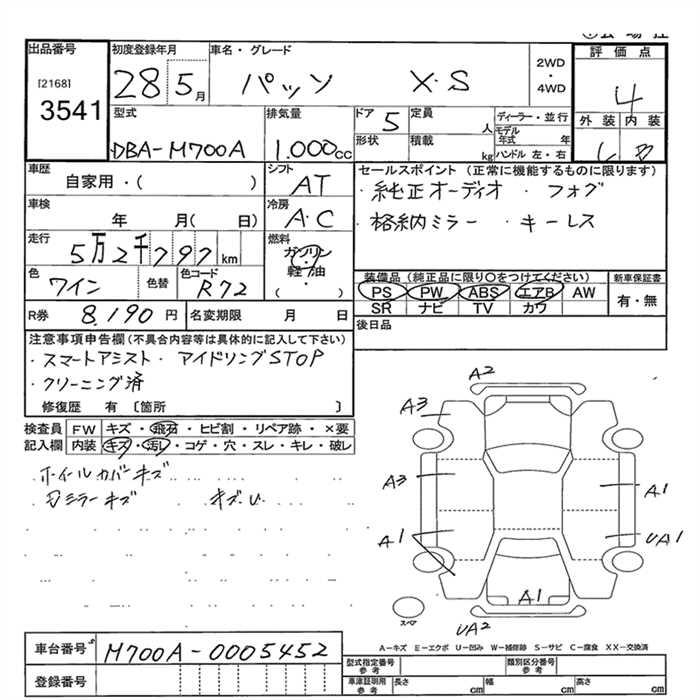 出品番号
[2168]
3541
初度登録年月
28 5月
車名・グレード
パッソ X・S
2WD
・
4WD
評価点
4
外装 内装
型式
DBA-M700A
排気量
1.000cc
ドア 5
定員 人
形状
積載 kg
ディーラー・並行
モデル年式 年
ハンドル 左・右
車歴
自家用・( )
シフト
AT
車検
年 月( 日)
冷房
A・C
走行
5万2千797km
燃料
ガソリン
・
軽油
・
( )
色
ワイン
色替
色コード
R72
R券 8,190 円
名変期限 月 日
セールスポイント (正常に機能するものに限ります)
・純正オーディオ ・フォグ
・格納ミラー ・キーレス
装備品 (純正品に限り○をつけてください)
PS PW ABS エアB AW
SR ナビ TV カワ
新車保証書
有・無
後日品
注意事項申告欄(不具合内容等は具体的に記入して下さい)
・スマートアシスト ・アイドリングSTOP
・クリーニング済
修復歴 有 〔箇所 〕
検査員記入欄
FW キズ・飛石・ヒビ割・リペア跡・×要
内装 キズ・汚レ・コゲ・穴・スレ・キレ・破レ
ホイールカバーキズ
ミラーキズ
A2
A3
A3
A1
A1
UA1
A1
UA2
スペア
A-キズ E-エクボ U-凹み W-補修跡 S-サビ C-腐食 XX-交換済
車台番号
M700A-0005452
登録番号
型式指定番号 参考
類別区分番号 参考
車庫証明用 参考
長さ cm 幅 cm 高さ cm